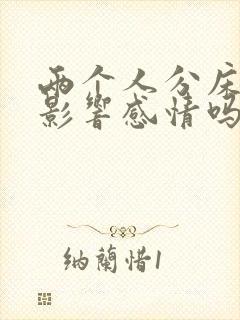 两个人分床
影響感情吗
纳蘭惜1